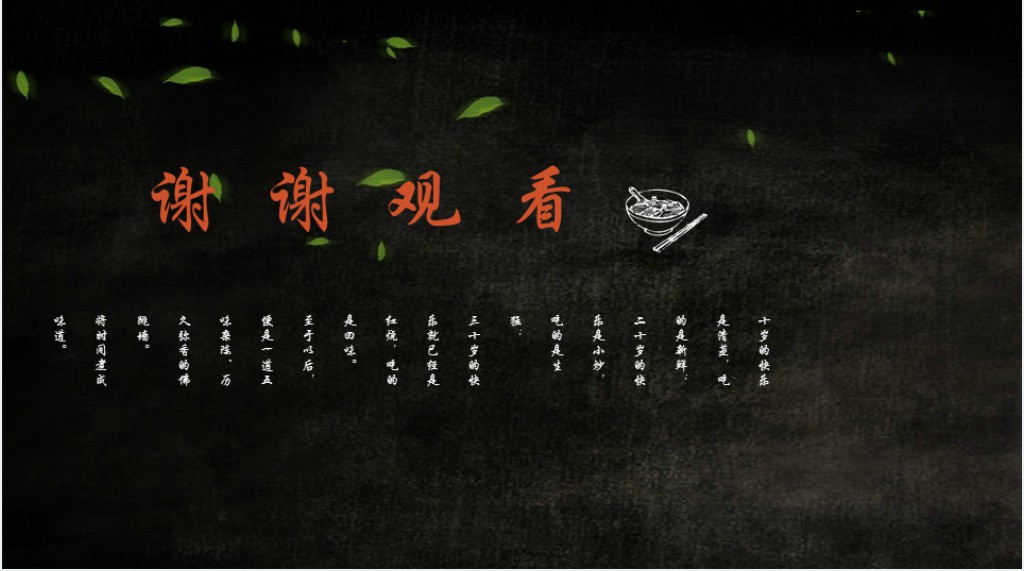 谢谢观看
十岁的快乐
是清蒸，吃
的是新鲜；
二十岁的快
乐是小炒，
吃的是生
猛；
三十岁的快
乐就已经是
红烧，吃的
是回味。
至于以后，
便是一道五
味杂陈、历
久弥香的佛
跳墙。
将时间煮成
味道。